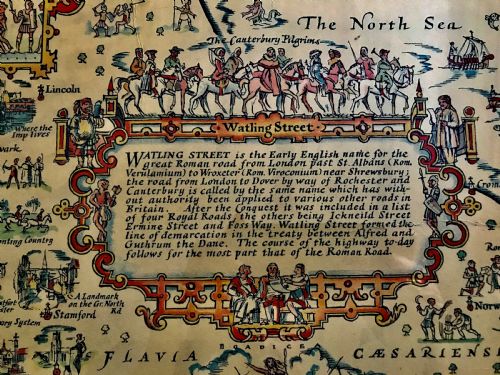 The North Sea
The Canterbury Pilgrims
Lincoln
Where the
Imp lives
Watling Street
WATLING STREET is the Early English name for the
great Roman road from London past St. Albans (Rom.
Verulamium) to Wroxeter (Rom. Viroconium) near Shrewsbury;
the road from London to Dover by way of Rochester and
Canterbury is called by the same name which has with-
out authority been applied to various other roads in
Britain. After the Conquest it was included in a list
of four Royal Roads, the others being Ickneild Street
Ermine Street and Foss Way. Watling Street formed the
line of demarcation in the treaty between Alfred and
Guthrum the Dane. The course of the highway to-day
follows for the most part that of the Roman Road.
nting Country
A Landmark
on the Gt. North
Rd
Stamford
ory System
Norw
FLAVIA
CÆSARIENS